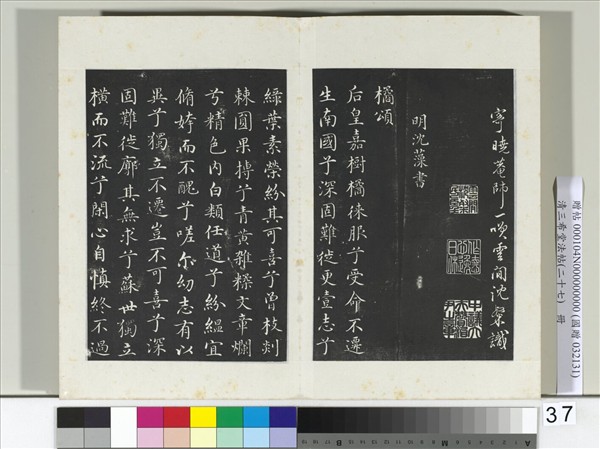 寄曉菴師一咲雲間沈粲識
明沈藻書
橘頌
后皇嘉樹橘徠服兮受命不遷
生南國兮深固難徙更壹志兮
綠葉素榮紛其可喜兮曾枝剡
棘圓果摶兮青黃雜糅文章爛
兮精色內白類任道兮紛緼宜
脩姱而不醜兮嗟尔幼志有以
異兮獨立不遷豈不可喜兮深
固難徙廓其無求兮蘇世獨立
橫而不流兮閉心自慎終不過
贈帖 000104N000000000 (國贈 032131)
清三希堂法帖(二十七) 冊
37